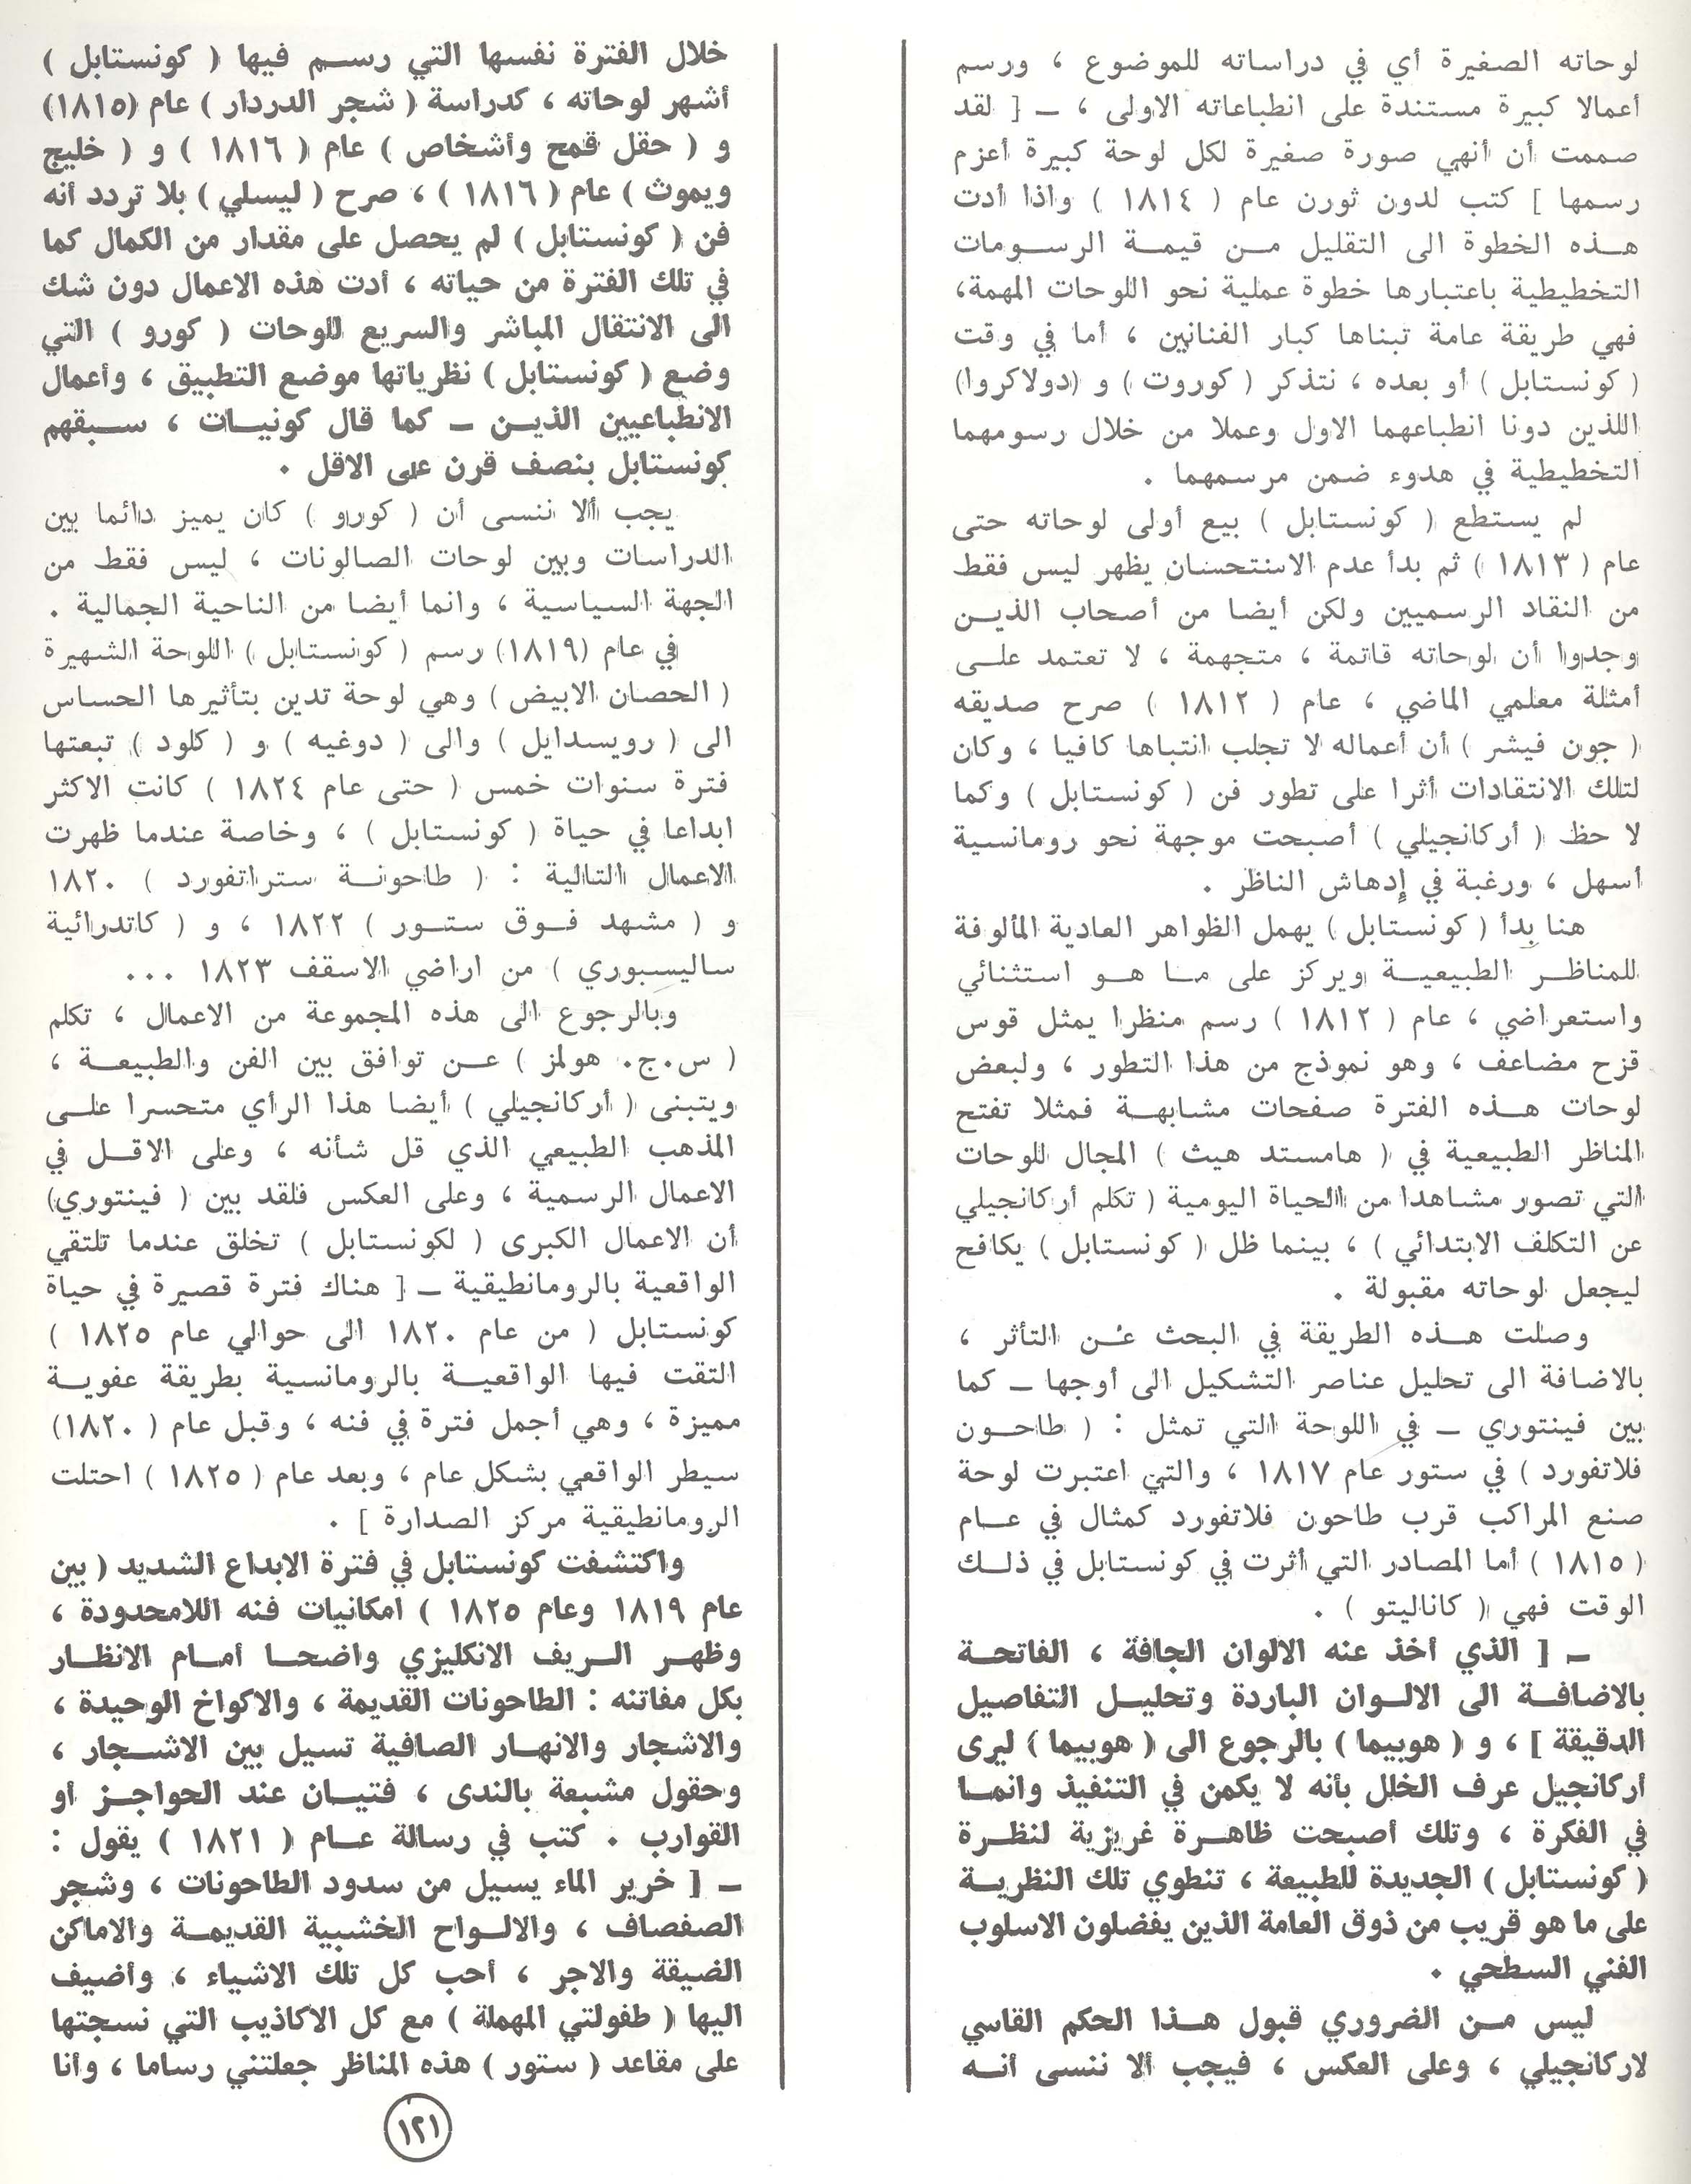 لوحاته الصغيرة أي في دراساته للموضوع ، ورسم
أعمالا كبيرة مستندة على انطباعاته الاولى ، ــ [ لقد
صممت أن أنهي صورة صغيرة لكل لوحة كبيرة أعزم
رسمها ] كتب لدون ثورن عام ( ١٨١٤ ) واذا أدت
هـــذه الخطوة الى التقليل مـــن قيمـة الرســـومات
التخطيطية باعتبارها خطوة عملية نحو اللوحات المهمة،
فهي طريقة عامة تبناها كبار الفنانين ، أما في وقت
( كونستابل ) أو بعده ، نتذكر ( كوروت ) و (دولاكروا)
اللذين دونا انطباعهما الاول وعملا من خلال رسومهما
التخطيطية في هدوء ضمن مرسمهما .
لم يستطع ( كونستابل ) بيع أولى لوحاته حتى
عام ( ١٨١٣ ) ثم بدأ عدم الاستحسان يظهر ليس فقط
من النقاد الرسميين ولكن أيضا من أصحاب الذيـــن
وجدوا أن لوحاته قاتمة ، متجهمة ، لا تعتمد علـــى
أمثلة معلمي الماضي ، عام ( ١٨١٢ ) صرح صديقه
( جون فيشر ) أن أعماله لا تجلب انتباها كافيا ، وكان
لتلك الانتقادات أثرا على تطور فن ( كونستابل ) وكما
لا حظ ( أركانجيلي ) أصبحت موجهة نحو رومانسية
أسهل ، ورغبة في إدهاش الناظر .
هنا بدأ ( كونستابل ) يهمل الظواهر العادية المألوفة
للمناظـــر الطبيعيـــة ويركز على مـــا هـــو استثنائي
واستعراضي ، عام ( ١٨١٢ ) رسم منظرا يمثل قوس
قزح مضاعف ، وهو نموذج من هذا التطور ، ولبعض
لوحات هـــذه الفترة صفحات مشابهـــة فمثلا تفتح
المناظر الطبيعية في ( هامستد هيث ) المجال للوحات
التي تصور مشاهدا من الحياة اليومية ( تكلم أركانجيلي
عن التكلف الابتدائي ) ، بينما ظل ( كونستابل ) يكافح
ليجعل لوحاته مقبولة .
وصلت هـــذه الطريقة في البحث عـــن التأثر ،
بالاضافة الى تحليل عناصر التشكيل الى أوجها ــ كما
بين فينتوري ــ في اللوحة التي تمثل : ( طاحـــون
فلاتفورد ) في ستور عام ١٨١٧ ، والتي اعتبرت لوحة
صنع المراكب قرب طاحون فلاتفورد كمثال في عـــام
( ١٨١٥ ) أما المصادر التي أثرت في كونستابل في ذلـــك
الوقت فهي ( كاناليتو ) .
ــ [ الذي أخذ عنه الالوان الجافة ، الفاتحـــة
بالاضافـــة الى الالـــوان الباردة وتحليـــل التفاصيل
الدقيقة ] ، و ( هوبيما ) بالرجوع الى ( هوبيما ) ليرى
أركانجيل عرف الخلل بأنه لا يكمن في التنفيذ وانمـــا
في الفكرة ، وتلك أصبحت ظاهـــرة غريزية لنظـــرة
( كونستابل ) الجديدة للطبيعة ، تنطوي تلك النظريـــة
على ما هو قريب من ذوق العامة الذين يفضلون الاسلوب
الفني السطحي .
ليس مـــن الضروري قبول هـــذا الحكم القاسي
لاركانجيلي ، وعلى العكس ، فيجب ألا ننسى أنـــه
خلال الفترة نفسها التي رســـم فيها ( كونستابل )
أشهر لوحاته ، كدراسة ( شجر الدردار ) عام (١٨١٥)
و ( حقل قمح وأشخاص ) عام ( ١٨١٦ ) و ( خليج
ويموث ) عام ( ١٨١٦ ) ، صرح ( ليسلي ) بلا تردد أنه
فن ( كونستابل ) لم يحصل على مقدار من الكمال كما
في تلك الفترة من حياته ، أدت هذه الاعمال دون شك
الى الانتقال المباشر والسريع للوحات ( كورو ) التي
وضع ( كونستابل ) نظرياتها موضع التطبيق ، وأعمال
الانطباعيين الذيـــن ــ كما قال كونيـــات ، ســـبقهم
كونستابل بنصف قرن على الاقل .
يجب ألا ننسى أن ( كورو ) كان يميز دائما بين
الدراسات وبين لوحات الصالونات ، ليس فقط من
الجهة السياسية ، وانما أيضا من الناحية الجمالية .
في عام (١٨١٩) رسم ( كونستابل ) اللوحة الشهيرة
( الحصان الابيض ) وهي لوحة تدين بتأثيرها الحساس
الى ( رويسدايل ) والى ( دوغيه ) و ( كلود ) تبعتها
فترة سنوات خمس ( حتى عام ١٨٢٤ ) كانت الاكثر
ابداعا في حياة ( كونستابل ) ، وخاصة عندما ظهرت
الاعمال التالية : ( طاحونـــة ستراتفورد ) ١٨٢٠
و ( مشهد فـــوق ستـــور ) ١٨٢٢ ، و ( كاتدرائية
ساليسبوري ) من اراضي الاسقف ١٨٢٣ ...
وبالرجوع الى هذه المجموعة من الاعمال ، تكلم
( س.ج. هولمز ) عـــن توافق بين الفن والطبيعـــة ،
ويتبنى ( أركانجيلي ) أيضا هذا الرأي متحسرا علـــى
المذهب الطبيعي الذي قل شأنه ، وعلى الاقـــل في
الاعمال الرسمية ، وعلى العكس فلقد بين ( فينتوري)
أن الاعمال الكبرى ( لكونستابل ) تخلق عندما تلتقي
الواقعية بالرومانطيقية ــ [ هناك فترة قصيرة في حياة
كونستابل ( من عام ١٨٢٠ الى حوالي عام ١٨٢٥ )
التقت فيها الواقعيـــة بالرومانسية بطريقة عفويـــة
مميزة ، وهي أجمل فترة في فنه ، وقبل عام ( ١٨٢٠)
سيطر الواقعي بشكل عام ، وبعد عام ( ١٨٢٥ ) احتلت
الرومانطيقية مركز الصدارة ] .
واكتشفت كونستابل في فترة الابداع الشديد ( بين
عام ١٨١٩ وعام ١٨٢٥ ) امكانيات فنه اللامحدودة ،
وظهـــر الـــريف الانكليزي واضحـــا أمـــام الانظـــار
بكل مفاتنه : الطاحونات القديمة ، والاكواخ الوحيدة ،
والاشجار والانهـــار الصافية تسيل بين الاشـــجار ،
وحقول مشبعة بالندى ، فتيـــان عند الحواجـــز أو
القوارب . كتب في رسالة عـــام ( ١٨٢١ ) يقول :
ــ [ خرير الماء يسيل من سدود الطاحونات ، وشجر
الصفصاف ، والالـــواح الخشبية القديمـــة والاماكن
الضيقة والاجر ، أحب كل تلك الاشياء ، وأضيف
اليها ( طفولتي المهملة ) مع كل الاكاذيب التي نسجتها
على مقاعد ( ستور ) هذه المناظر جعلتني رساما ، وأنا
١٢١